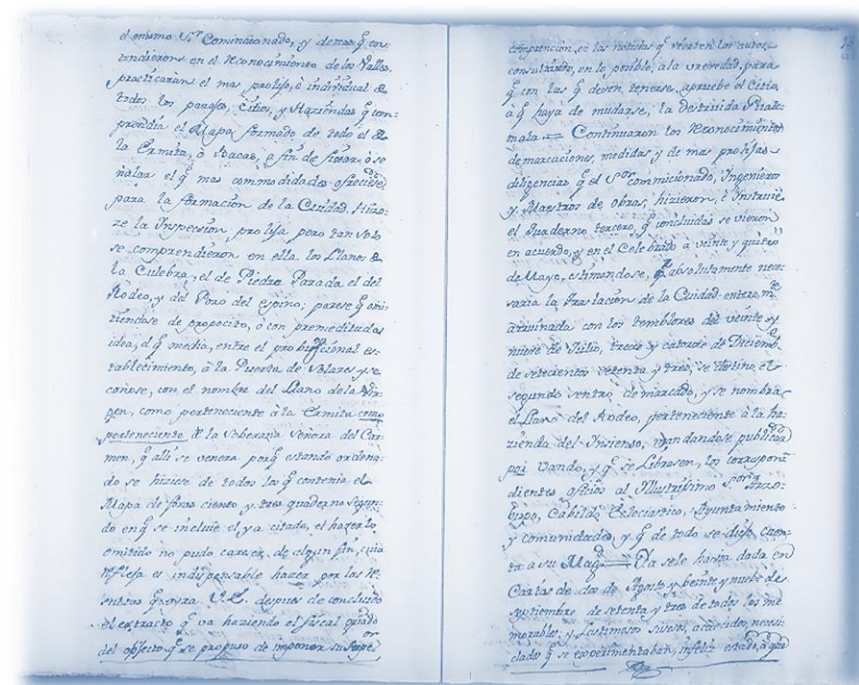 el mismo Sr. Comincionado, y demas q en-
tendieron en el reconocimiento de los Valles,
practicaran el mas prolijo, è individual de
todos los parajes, citios, y Haziendas q com-
prendia el Mapa formado de todo el de
la Ermita, ò Bacas, a fin de fixar, ò se
ñalar el q mas commodidades ofreciese
para la formacion de la Ciudad. Hizo-
ze la Inspecsion, prolija pero tan solo
se comprendieron en ella los Llanos de
la Culebra, el de Piedra Parada el del
Rodeo, y del Poso del espino; parese q omi-
tiendose de proposito, ò con premeditadas
idea, el q media, entre el probisional es-
tablecimiento, à la Puerta de Volares y se
conose, con el nombre del Llano de la Vir-
gen, como perteneciente à la Ermita como
perteneciente de la Soberana Señora del Car-
men, q alli se venera porq estando ordena-
do se hiziese de todos los q contenia el
Mapa de foxas ciento, y tres quaderno segun-
do en q se incluie el ya citado, el hazerlo
omitido no pudo carecer, de algun fin, cuia
reflexa es indispensable hazer por las re-
sultas q oyra V.S. despues de concluido
el extracto q va haziendo el fiscal guiado
del objecto q se propuso de imponer su Super.or
comprencion, en las noticias q vierten los autos,
consultando, en lo posible, a la vreveda​d, para
q con las q deven tenerse, apruebe el Citio,
à q haya de mudarse, la destruida Goate-
mala. = Continuaron los reconocimientos
demarcaciones, medidas y de mas prolijas
diligencias q el Sor commicionado, Ingeniero
y Maestros de obras, hizieron, è Instruie
el quaderno tercero, q concluidas se vieron
en acuerdo, y en el Celebrado à veinte y quatro
de Mayo, estimandose, pr absolutamente nece-
saria la traslacion de la Cuidad enteram.te
arruinada con los temblores del veinte y
nueve de Julio, trece y catorce de Diciembe
de setecientos setenta y tres, se destina el
segundo sentro demarcado, y se nombra
el Llano del Rodeo, perteneciente à la ha-
zienda del Insienso, mandandose publicar
por vando, y q se Librasen, los correspon-
dientes oficios al Illustrissimo Sor Arzo-
bispo, Cabildo Eclesiastico, Ayuntamiento
y comunidades, y q de todo se diese cuen-
ta a su Magd = Ya se le havia dada en
Cartas de dos de Agosto y beinte y nuebe de
septiembre de setenta y tres de todos los me
morables, y Lastimosos susesos, acaecidos, necesi
dades q se experimentaban, infeliz estado, à que